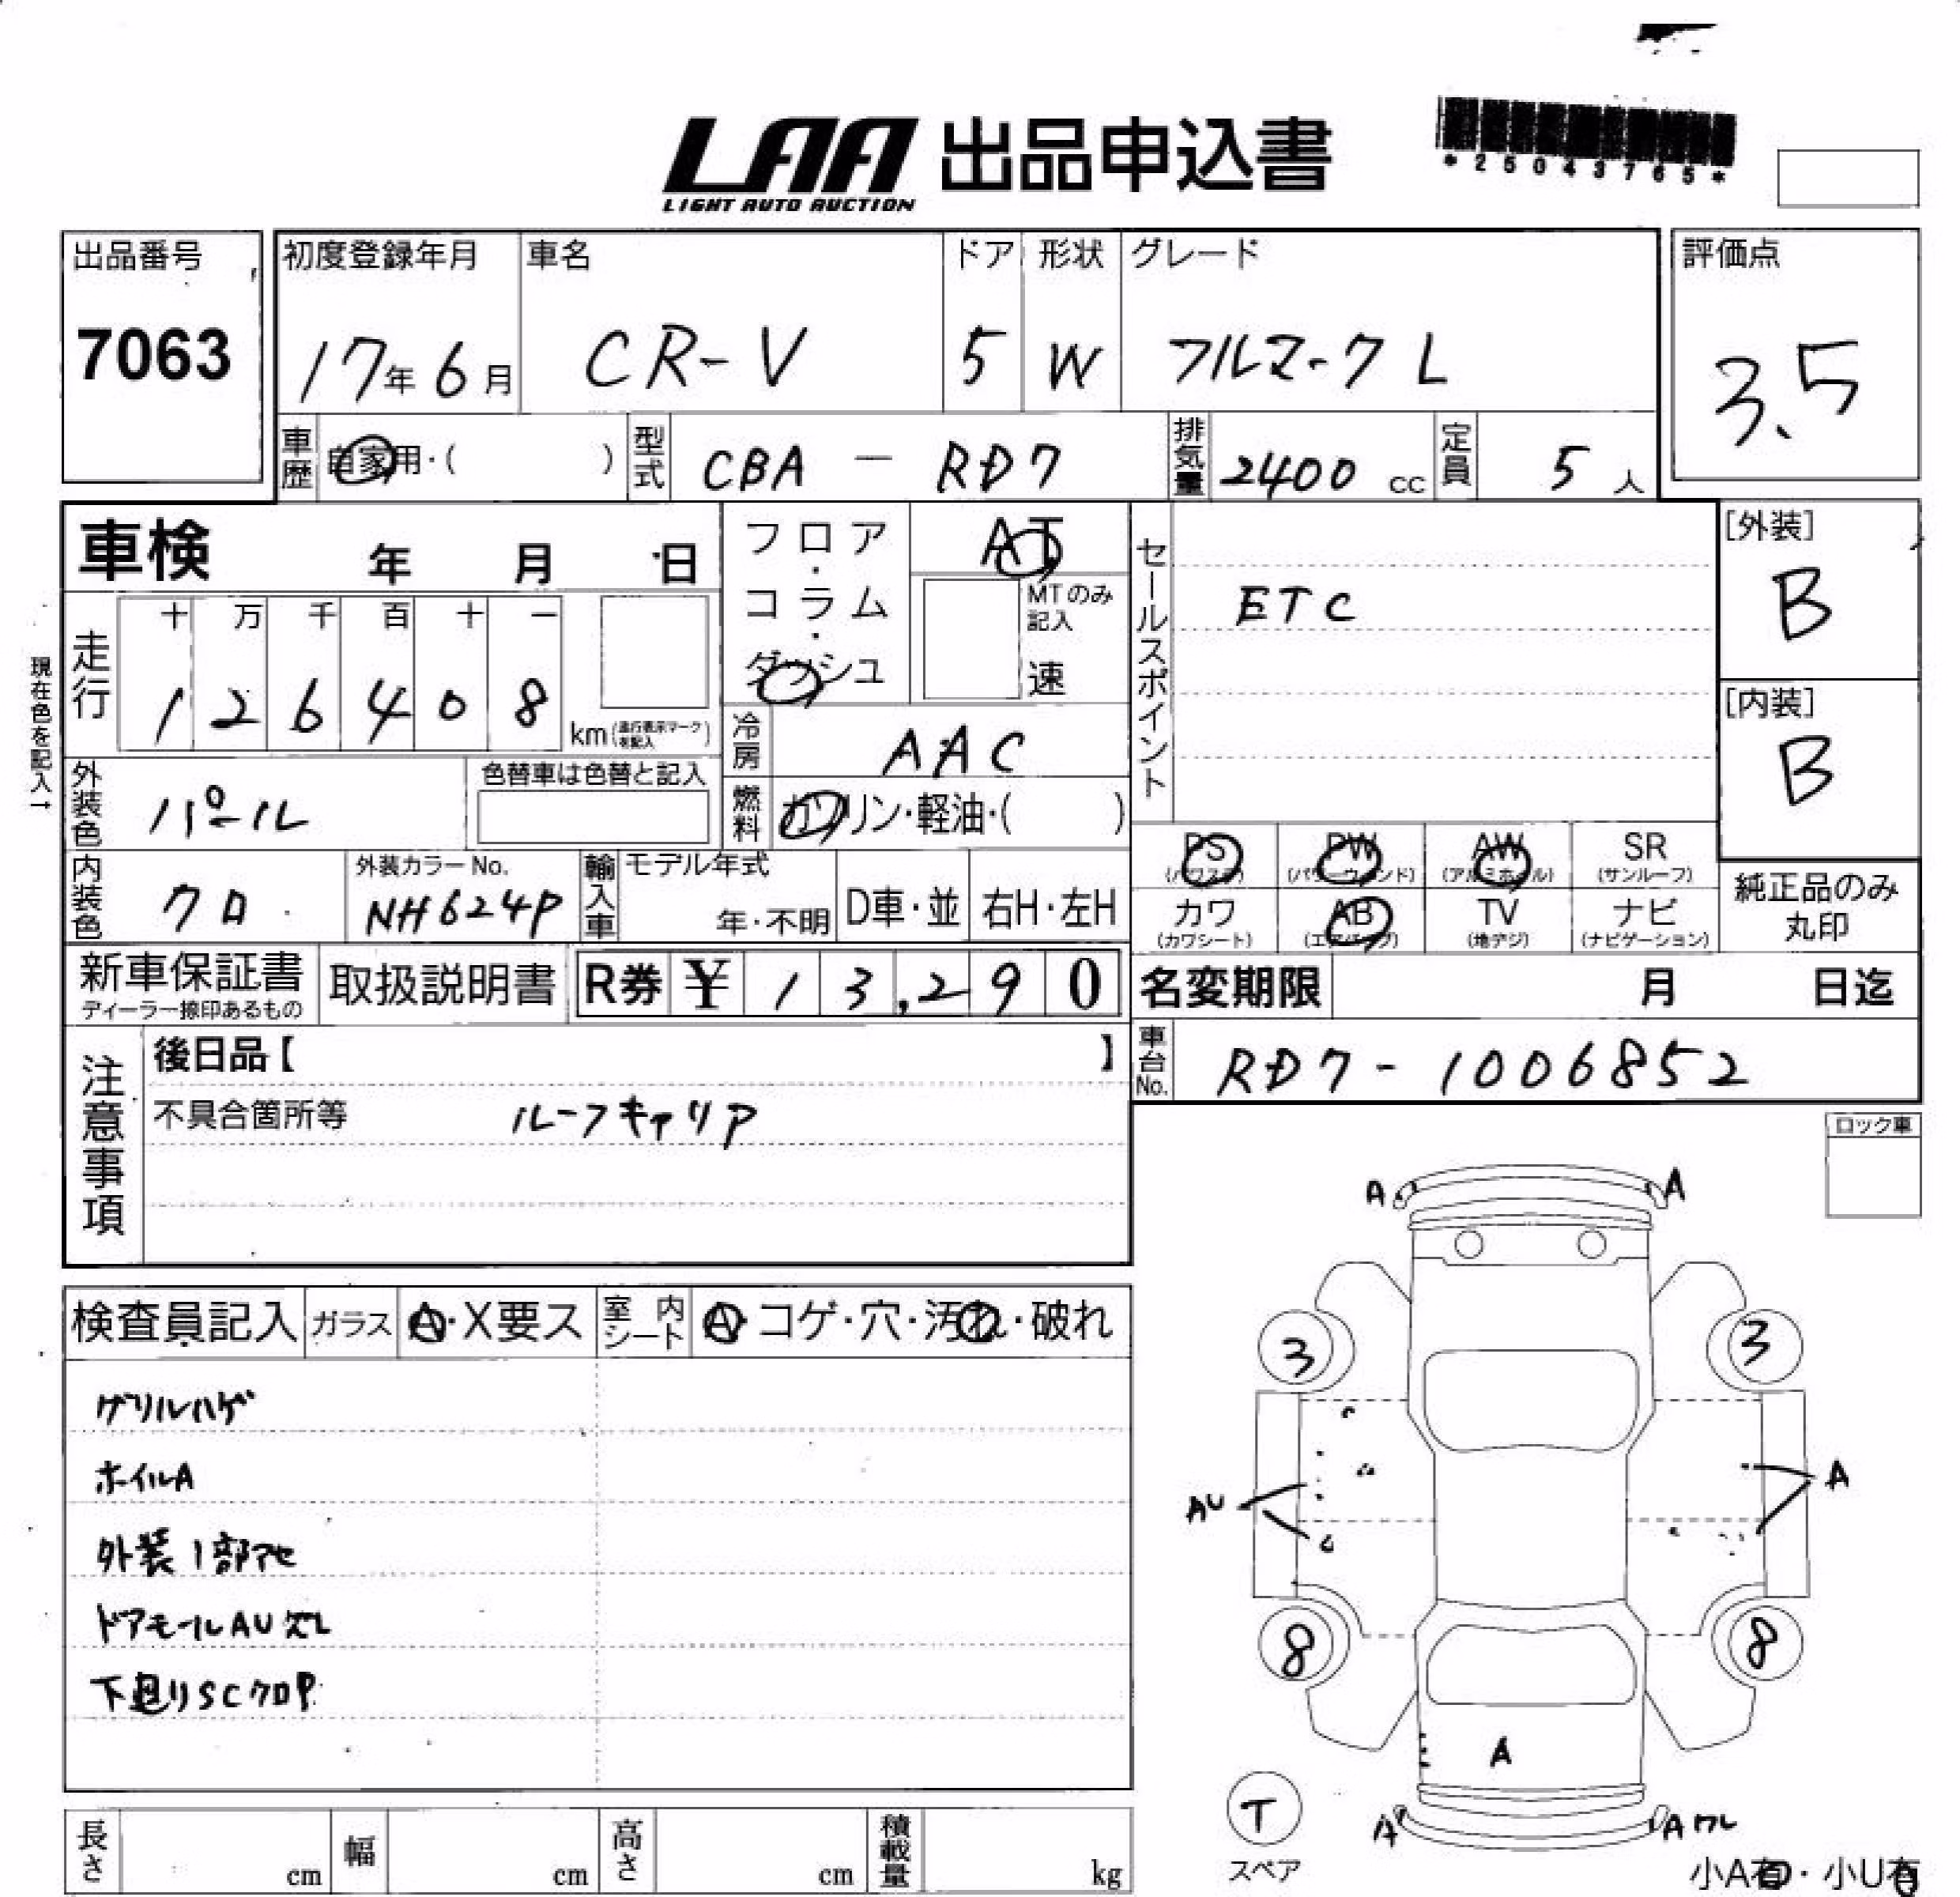 LAA 出品申込書
LIGHT AUTO AUCTION
*25043765*
出品番号 初度登録年月 車名 ドア 形状 グレード 評価点
7063 17年6月 CR-V 5 W フルマーク L 3.5
車歴 自家用・( ) 型式 CBA - RD7 排気量 2400 cc 定員 5 人
車検 年 月 日 フロア・コラム・ダッシュ AT セールスポイント [外装]
MTのみ記入 速 ETC B
走行 十 万 千 百 十 一
1 2 6 4 0 8 km (走行表示マークを記入) [内装]
現在色を記入→ 冷房 AAC B
外装色 パール 色替車は色替と記入 燃料 ガソリン・軽油・( )
PS (パワステ) PW (パワーウィンド) AW (アルミホイル) SR (サンルーフ)
内装色 クロ 外装カラーNo. NH624P 輸入車 モデル年式 年・不明 D車・並 右H・左H
カワ (カワシート) AB (エアバッグ) TV (地デジ) ナビ (ナビゲーション) 純正品のみ丸印
新車保証書 ディーラー捺印あるもの 取扱説明書 R券 ¥ 13,290 名変期限 月 日迄
注意事項 後日品【 】 車台No. RD7-1006852
不具合箇所等 ルーフキャリア
ロック車
A A
検査員記入 ガラス A・X要ス 室内シート A・コゲ・穴・汚れ・破れ
3 3
グリルハゲ
ホイルA
AU A
外装1部アセ
ドアモールAUズレ
8 8
下廻りSCクロP
A
T
スペア
A Aワレ
長さ cm 幅 cm 高さ cm 積載量 kg
小A有・小U有